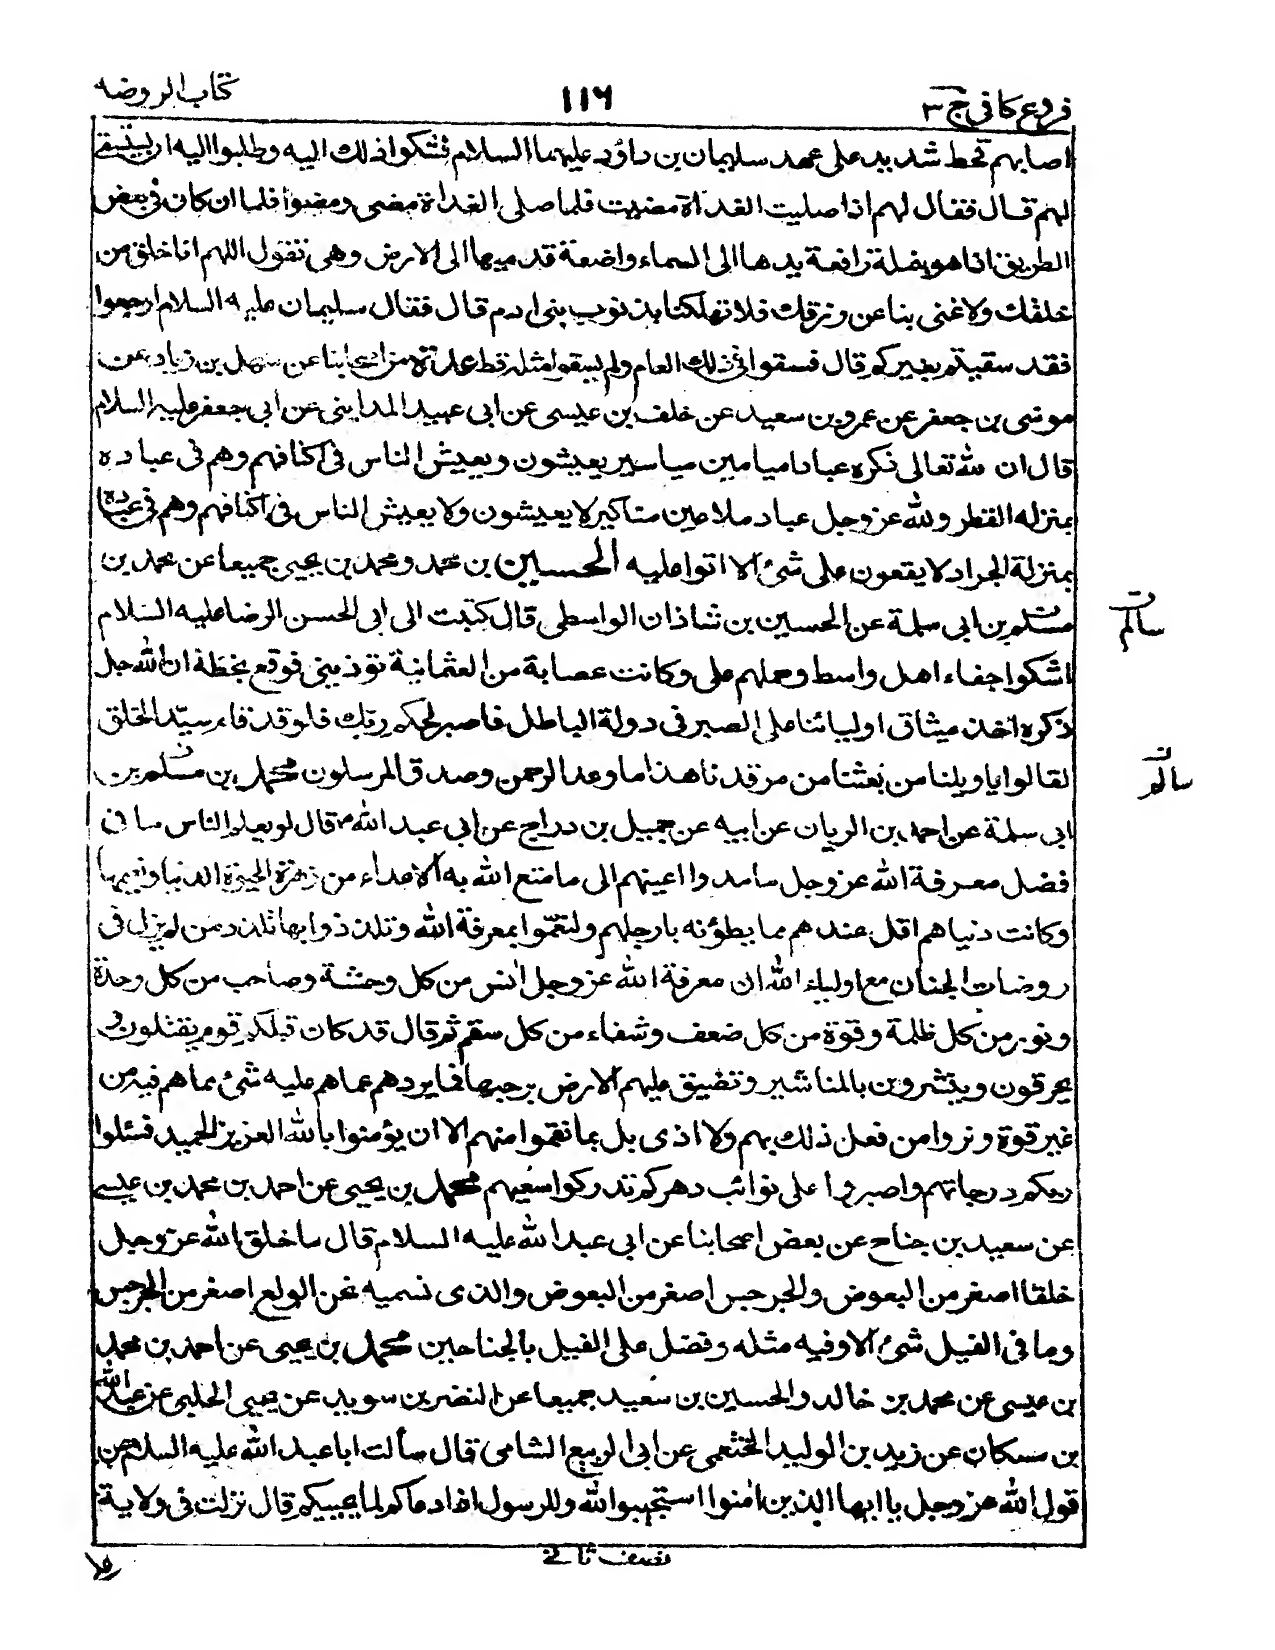 فروع کافی ج ۳
۱۱۶
کتاب الروضه
اصابهم قحط شدید علی عهد سلیمان بن داؤد علیهما السلام فشکوا ذلک الیه وطلبوا الیه ان یستسقی
لهم قال فقال لهم اذا صلیت الغداة مضیت فلما صلی الغداة مضی ومضوا فلما ان کان فی بعض
الطریق اذا هو بنملة رافعة یدها الی السماء واضعة قدمیها الی الارض وهی تقول اللهم انا خلق من
خلقک ولا غنی بنا عن رزقک فلا تهلکنا بذنوب بنی ادم قال فقال سلیمان علیه السلام ارجعوا
فقد سقیتم بغیرکم قال فسقوا فی ذلک العام ولم یسقوا مثله قط عدة من اصحابنا عن سهل بن زیاد عن
موسی بن جعفر عن عمرو بن سعید عن خلف بن عیسی عن ابی عبید المداینی عن ابی جعفر علیه السلام
قال ان لله تعالی ذکره عبادا میامین میاسیر یعیشون ویعیش الناس فی اکنافهم وهم فی عباده
بمنزله القطر ولله عز وجل عباد ملاعین مناکیر لا یعیشون ولا یعیش الناس فی اکنافهم وهم فی عباده
بمنزلة الجراد لا یقعون علی شئ الا اتوا علیه الحسین بن محمد ومحمد بن یحیی جمیعا عن محمد بن
مسلم بن ابی سلمة عن الحسین بن شاذان الواسطی قال کتبت الی ابی الحسن الرضا علیه السلام
اشکوا جفاء اهل واسط وحملهم علی وکانت عصابة من العثمانیة توذینی فوقع بخطه ان الله جل
ذکره اخذ میثاق اولیائنا علی الصبر فی دولة الباطل فاصبر لحکم ربک فلو قد قاء سید الخلق
لقالوا یا ویلنا من بعثنا من مرقدنا هذا ما وعد الرحمن وصدق المرسلون محمد بن مسلم بن
ابی سلمة عن احمد بن الریان عن ابیه عن جمیل بن دراج عن ابی عبد الله ع قال لو یعلم الناس ما فی
فضل معرفة الله عز وجل ما مدوا اعینهم الی ما متع الله به الاعداء من زهرة الحیوة الدنیا ونعیمها
وکانت دنیاهم اقل عندهم مما یطؤنه بارجلهم ولنعموا بمعرفة الله وتلذذوا بها تلذذ من لم یزل فی
روضات الجنان مع اولیاء الله ان معرفة الله عز وجل انس من کل وحشة وصاحب من کل وحدة
ونور من کل ظلمة وقوة من کل ضعف وشفاء من کل سقم ثم قال قد کان قبلکم قوم یقتلون و
یحرقون وینشرون بالمناشیر وتضیق علیهم الارض برحبها فما یردهم عما هم علیه شئ مما هم فیه من
غیر قوة وتروا من فعل ذلک بهم ولا اذی بل بما نقموا منهم الا ان یؤمنوا بالله العزیز الحمید فسئلوا
ربکم درجاتهم واصبروا علی نوائب دهرکم تدرکوا سعیهم محمد بن یحیی عن احمد بن محمد بن عیسی
عن سعید بن جناح عن بعض اصحابنا عن ابی عبد الله علیه السلام قال ما خلق الله عز وجل
خلقا اصغر من البعوض والجرجس اصغر من البعوض والذی نسمیه نحن الولع اصغر من الجرجس
وما فی الفیل شئ الا وفیه مثله وفضل علی الفیل بالجناحین محمد بن یحیی عن احمد بن محمد
بن عیسی عن محمد بن خالد والحسین بن سعید جمیعا عن النضر بن سوید عن یحیی الحلبی عن عبد الله
بن مسکان عن زید بن الولید الخثعمی عن ابی الربیع الشامی قال سألت ابا عبد الله علیه السلام عن
قول الله عز وجل یا ایها الذین امنوا استجیبوا لله وللرسول اذا دعاکم لما یحییکم قال نزلت فی ولایة
سالم ن
سالم ن
نصف ثانی